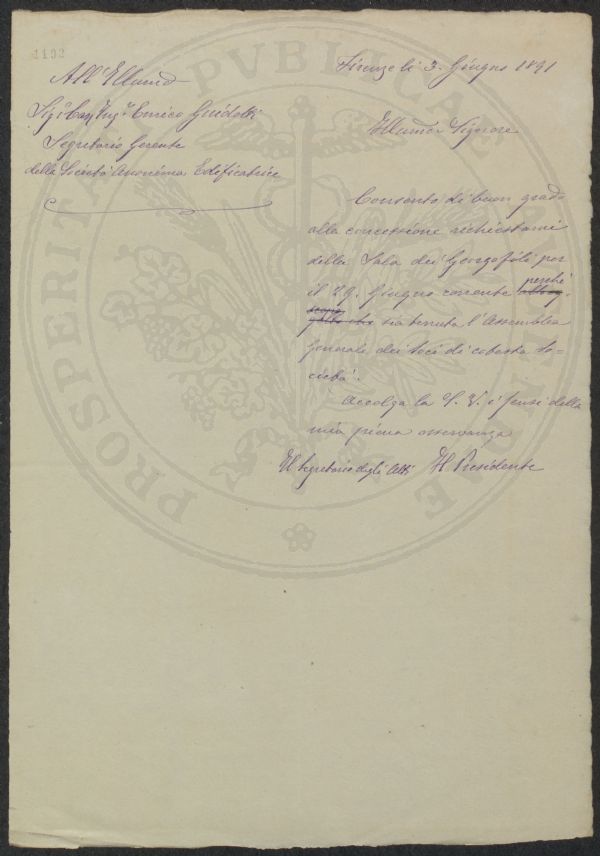 1192
Firenze li 3. Giugno 1891
All'Illmo
Sigr Cav. Ingr Enrico Guidotti
Segretario Gerente
della Società Anonima Edificatrice
Illmo Signore
Consento di buon grado
alla concessione richiestami
della Sala dei Georgofili per
il 29. Giugno corrente perchè
scopo
che sia tenuta l'Assemblea
Generale dei Soci di cotesta So=
cietà.
Accolga la S. V. i sensi della
mia piena osservanza
Il Segretario degli Atti Il Presidente
PROSPERITATI PVBLICAE AVGENDAE